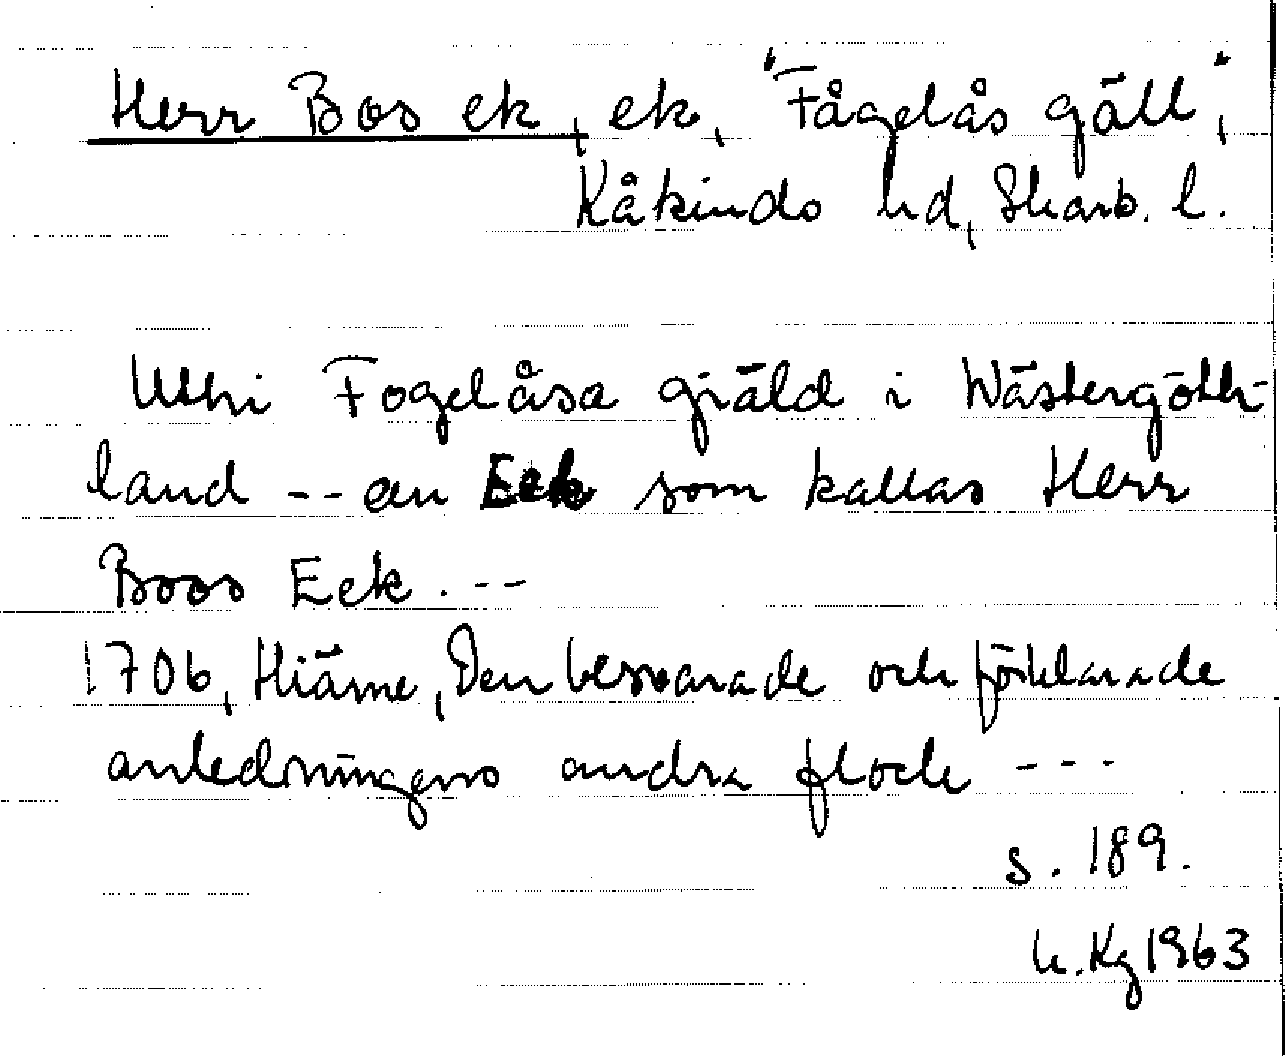 Herr Bos ek, ek, "Fågelås gäll",
Kåkinds hd, Skarab. l.
Uthi Fogelåsa giäld i Wästergöth-
land -- en Eek som kallas Herr
Boos Eek. --
1706, Hiärne, Den besvarade och förklarade
anledningens andra flock ---
s. 189.
h. Kg 1963